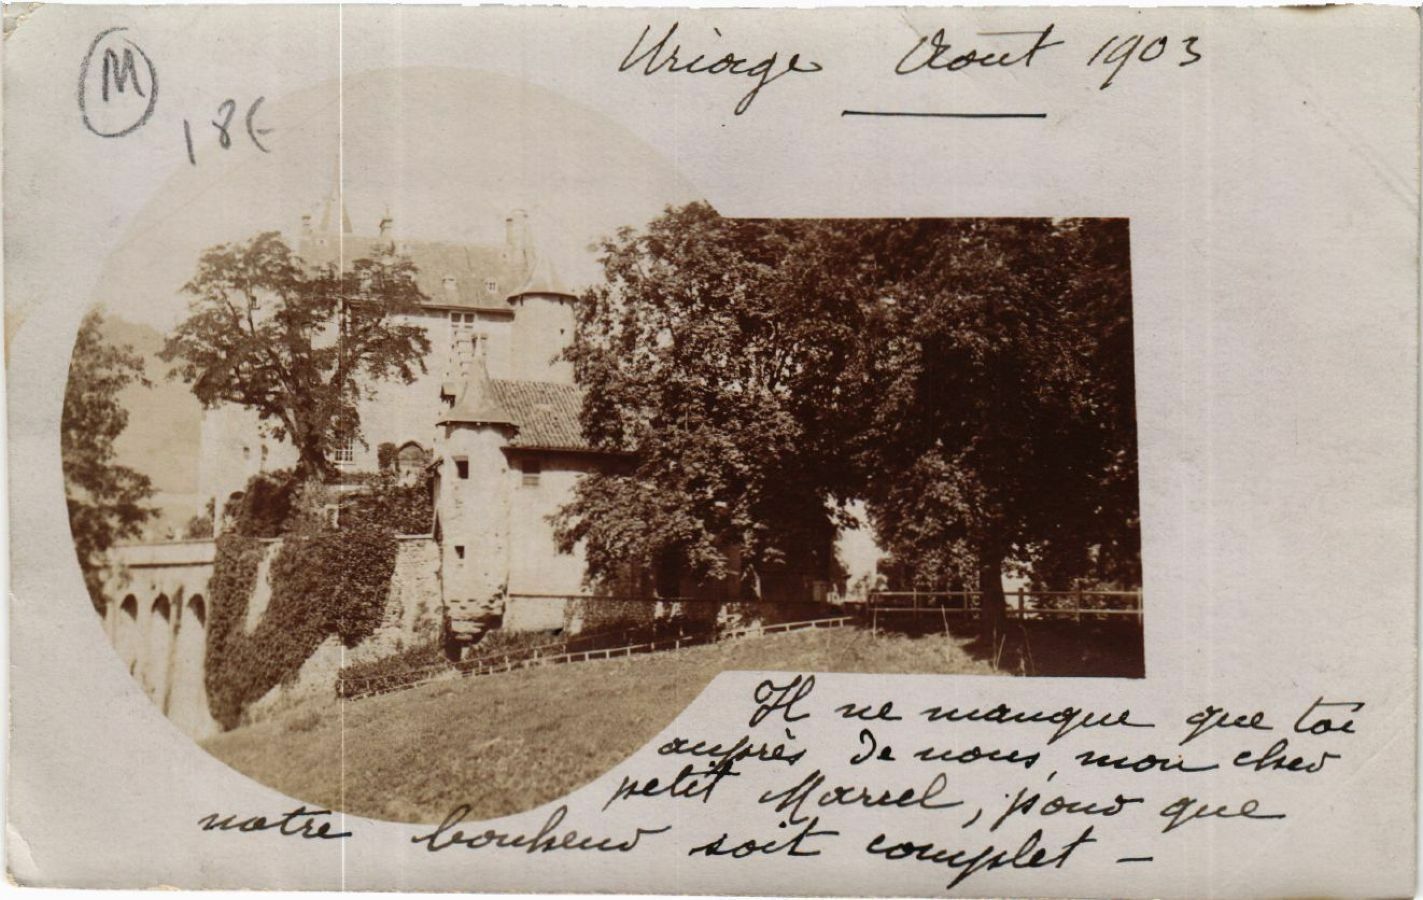 M
18€
Uriage Août 1903
Il ne manque que toi
auprès de nous, mon cher
petit Marcel, pour que
notre bonheur soit complet -